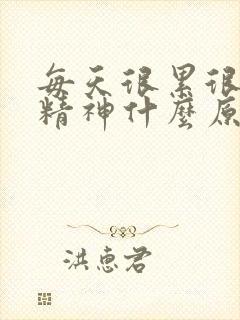 每天很累很
精神什麼原
洪惠君